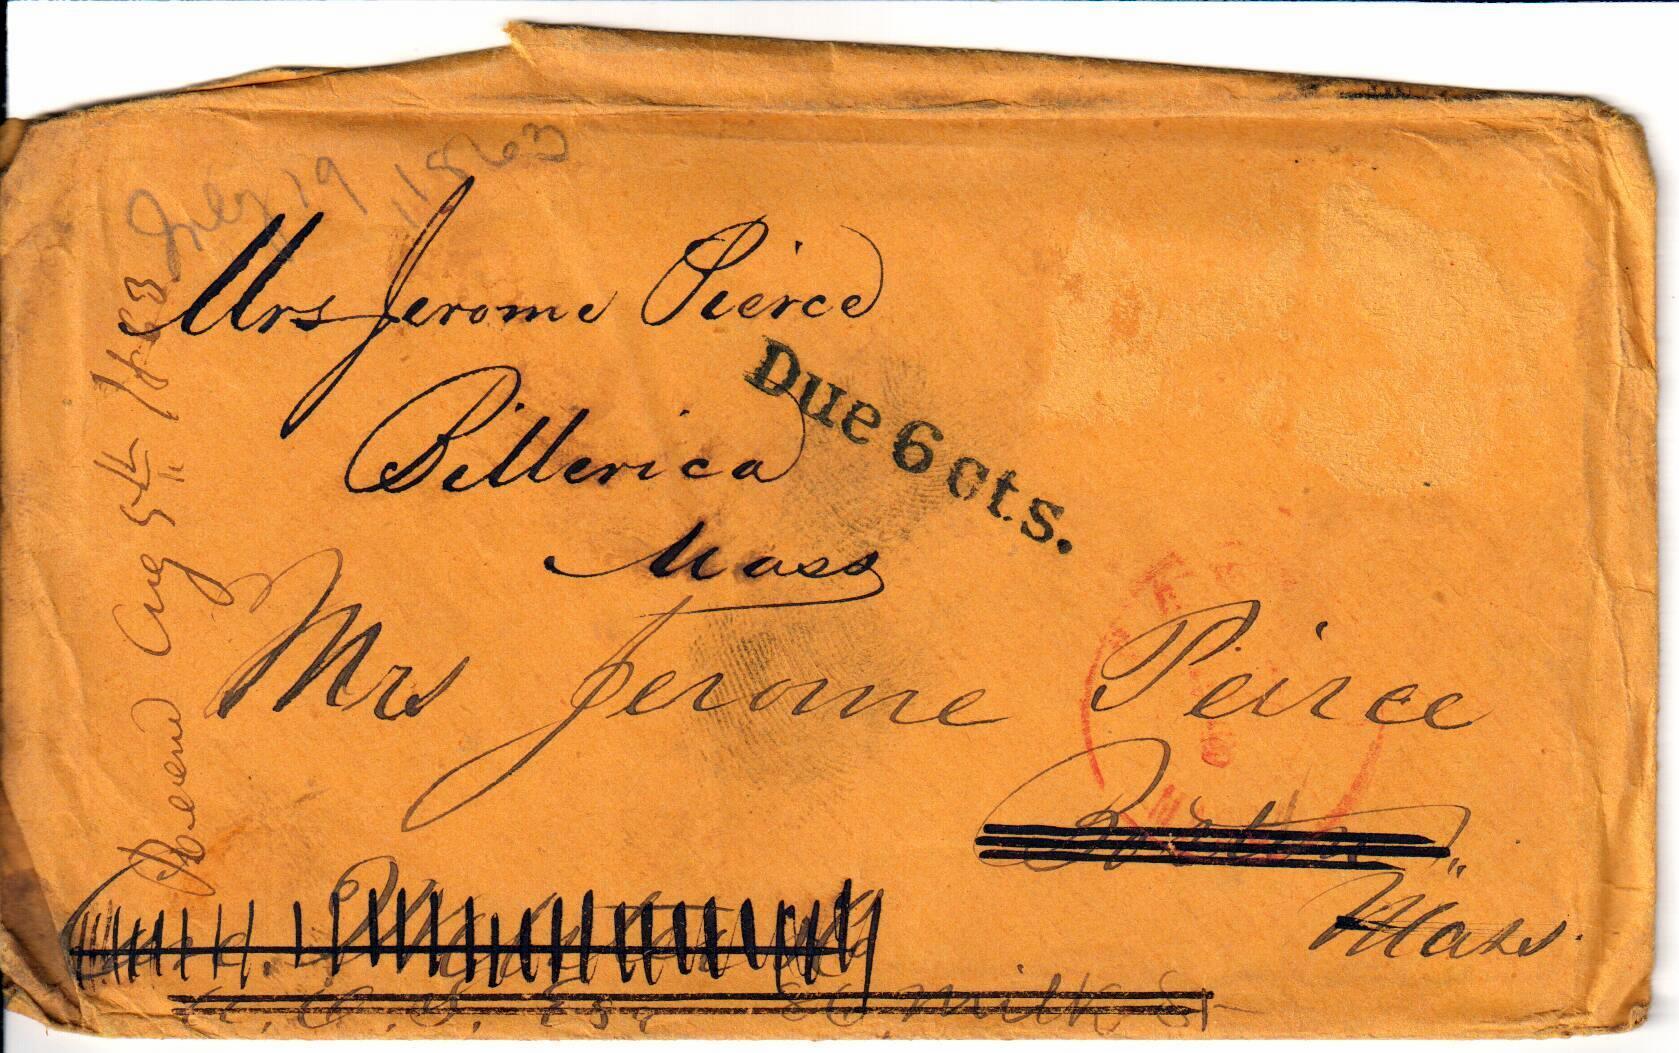 July 19 1863
Mrs Jerome Pierce
Billerica
Mass
Due 6 cts.
Aug 5th 1863
Mrs Jerome Peirce
Boston
Mass.
Milk St